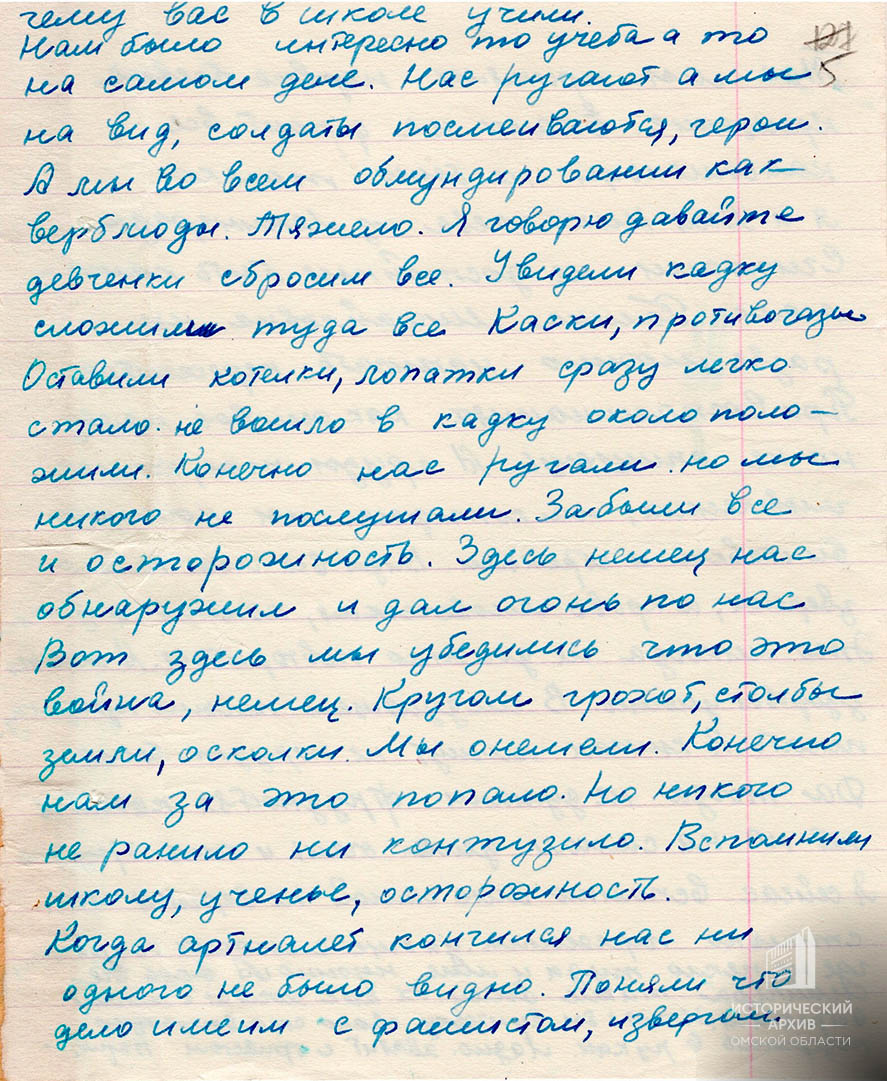 чему вас в школе учили.
Нам было интересно то учеба а то
на самом деле. Нас ругают а мы
5
на вид, солдаты посмеиваются, герои.
А мы во всем обмундировании как
верблюды. Тяжело. Я говорю давайте
девченки сбросим все. Увидели кадку
сложили туда все Каски, противогазы
Оставили котелки, лопатки сразу легко
стало. не вошло в кадку около поло-
жили. Конечно нас ругали. но мы
никого не послушали. Забыли все
и осторожность. Здесь немец нас
обнаружил и дал огонь по нас
Вот здесь мы убедились что это
война, немец. Кругом грохот, столбы
земли, осколки. Мы онемели. Конечно
нам за это попало. Но никого
не ранило ни контузило. Вспомнили
школу, ученье, осторожность.
Когда артналет кончился нас ни
одного не было видно. Поняли что
дело имеим с фашистом, извергом.
ИСТОРИЧЕСКИЙ
АРХИВ
ОМСКОЙ ОБЛАСТИ